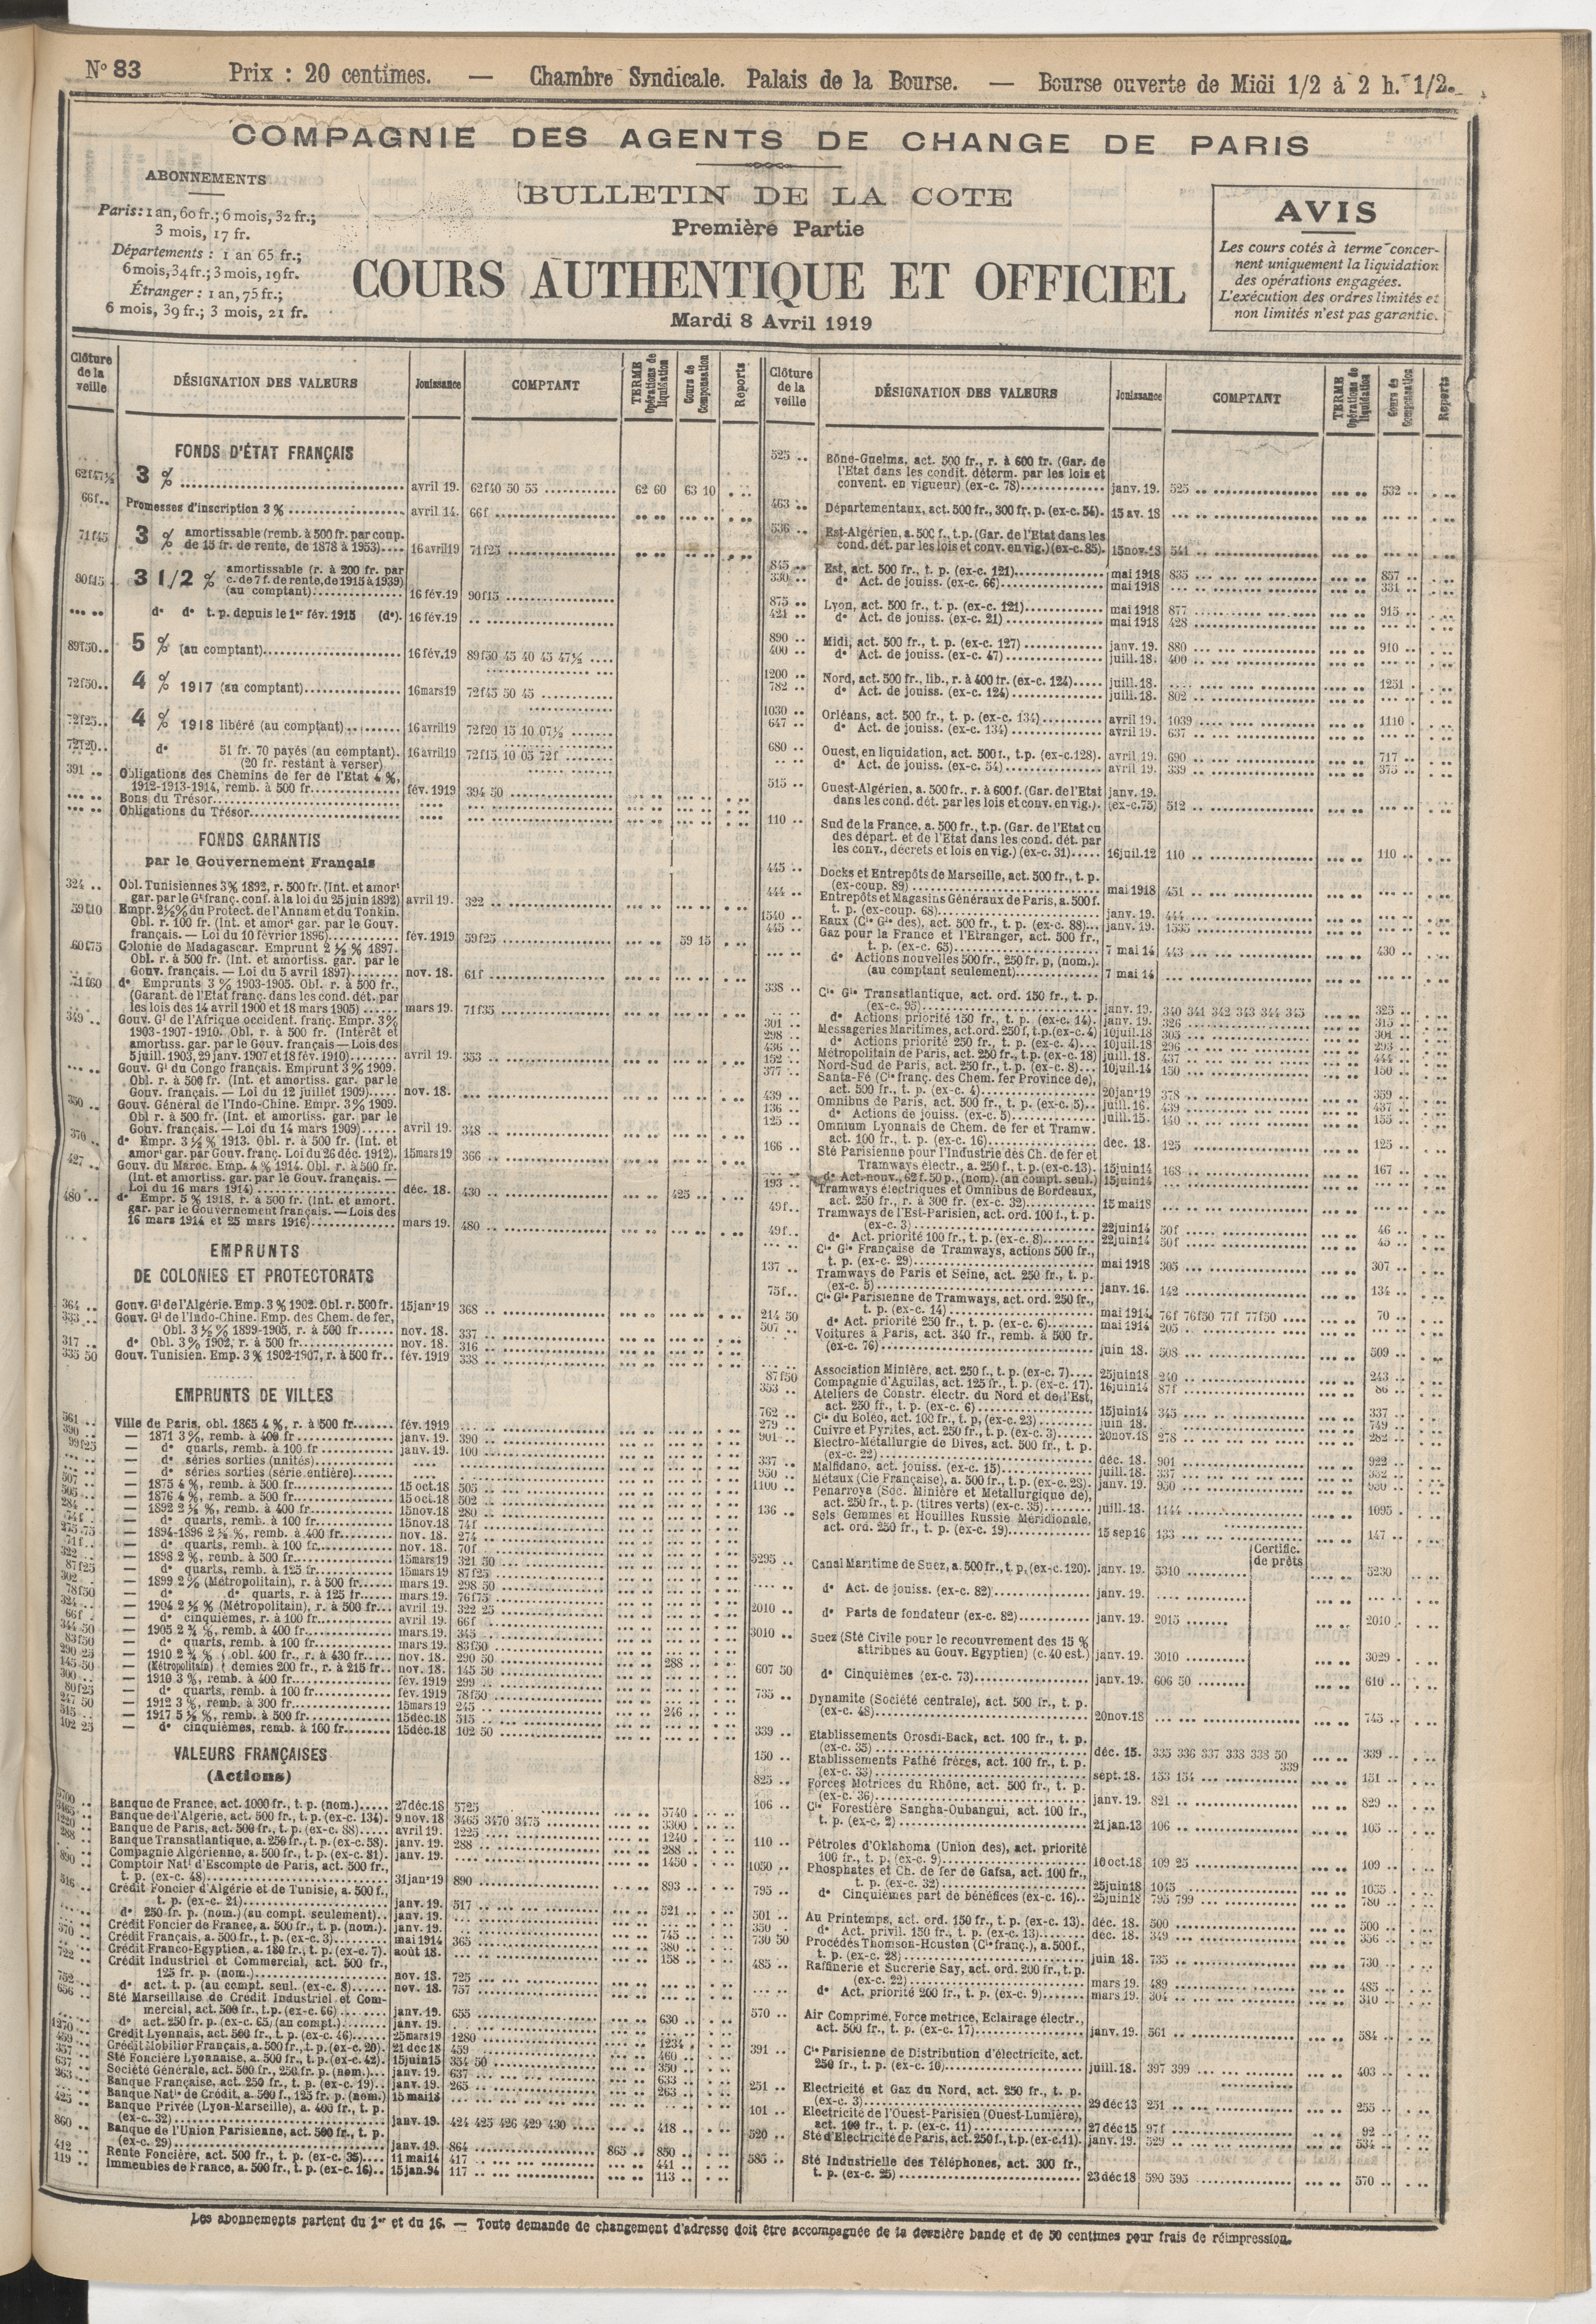 N° 83 Prix : 20 centimes. — Chambre Syndicale. Palais de la Bourse. — Bourse ouverte de Midi 1/2 à 2 h. 1/2.
COMPAGNIE DES AGENTS DE CHANGE DE PARIS
ABONNEMENTS
Paris: 1 an, 60 fr.; 6 mois, 32 fr.;
3 mois, 17 fr.
Départements : 1 an 65 fr.;
6 mois, 34 fr.; 3 mois, 19 fr.
Étranger : 1 an, 75 fr.;
6 mois, 39 fr.; 3 mois, 21 fr.
BULLETIN DE LA COTE
Première Partie
COURS AUTHENTIQUE ET OFFICIEL
Mardi 8 Avril 1919
AVIS
Les cours cotés à terme concer-
nent uniquement la liquidation
des opérations engagées.
L'exécution des ordres limités et
non limités n'est pas garantie.
Clôture de la veille DÉSIGNATION DES VALEURS Jouissance COMPTANT TERME Opérations de liquidation Cours de Compensation Reports
FONDS D'ÉTAT FRANÇAIS
62f47½ 3 % avril 19. 62f40 50 55 62 60 63 10
66f.. Promesses d'inscription 3 % avril 14. 66f
71f45 3 % amortissable (remb. à 500 fr. par coup.
de 15 fr. de rente, de 1878 à 1953) 16 avril 19 71f25
3 1/2 % amortissable (r. à 200 fr. par
c. de 7 f. de rente, de 1915 à 1939)
(au comptant) 16 fév. 19 90f15
d° d° t. p. depuis le 1er fév. 1915 (d°). 16 fév. 19
89f50.. 5 % (au comptant) 16 fév. 19 89f50 45 40 45 47½
72f50.. 4 % 1917 (au comptant) 16 mars 19 72f45 50 45
72f25.. 4 % 1918 libéré (au comptant) 16 avril 19 72f20 15 10 07½
72f20.. d° 51 fr. 70 payés (au comptant). 16 avril 19 72f15 10 05 72f
(20 fr. restant à verser)
391 .. Obligations des Chemins de fer de l'Etat 4 %,
1912-1913-1914, remb. à 500 fr. fév. 1919 394 50
Bons du Trésor
Obligations du Trésor
FONDS GARANTIS
par le Gouvernement Français
324 .. Obl. Tunisiennes 3 % 1892, r. 500 fr. (Int. et amort
gar. par le Gt franç. conf. à la loi du 25 juin 1892) avril 19. 322
59f10 Empr. 2½ % du Protect. de l'Annam et du Tonkin.
Obl. r. 100 fr. (Int. et amort gar. par le Gouv.
français. — Loi du 10 février 1896) fév. 1919 59f25 59 15
60f75 Colonie de Madagascar. Emprunt 2 ½ % 1897.
Obl. r. à 500 fr. (Int. et amortiss. gar. par le
Gouv. français. — Loi du 5 avril 1897) nov. 18. 61f
71f60 d° Emprunts 3 % 1903-1905. Obl. r. à 500 fr.,
(Garant. de l'Etat franç. dans les cond. dét. par
les lois des 14 avril 1900 et 18 mars 1905) mars 19. 71f35
349 .. Gouv. Gl de l'Afrique occident. franç. Empr. 3 %
1903-1907-1910. Obl. r. à 500 fr. (Intérêt et
amortiss. gar. par le Gouv. français — Lois des
5 juill. 1903, 29 janv. 1907 et 18 fév. 1910) avril 19. 353
Gouv. Gl du Congo français. Emprunt 3 % 1909.
Obl. r. à 500 fr. (Int. et amortiss. gar. par le
Gouv. français. — Loi du 12 juillet 1909) nov. 18.
350 .. Gouv. Général de l'Indo-Chine. Empr. 3 % 1909.
Obl r. à 500 fr. (Int. et amortiss. gar. par le
Gouv. français. — Loi du 14 mars 1909) avril 19. 348
370 .. d° Empr. 3 ½ % 1913. Obl. r. à 500 fr. (Int. et
amort gar. par Gouv. franç. Loi du 26 déc. 1912). 15 mars 19 366
427 .. Gouv. du Maroc. Emp. 4 % 1914. Obl. r. à 500 fr.
(Int. et amortiss. gar. par le Gouv. français. —
Loi du 16 mars 1914) déc. 18. 430 425
480 .. d° Empr. 5 % 1918, r. à 500 fr. (Int. et amort.
gar. par le Gouvernement français. — Lois des
16 mars 1914 et 25 mars 1916) mars 19. 480
EMPRUNTS
DE COLONIES ET PROTECTORATS
364 .. Gouv. Gl de l'Algérie. Emp. 3 % 1902. Obl. r. 500 fr. 15 janv 19 368
333 .. Gouv. Gl de l'Indo-Chine. Emp. des Chem. de fer,
Obl. 3 ½ % 1899-1905, r. à 500 fr. nov. 18. 337
317 .. d° Obl. 3 % 1902, r. à 500 fr. nov. 18. 316
335 50 Gouv. Tunisien. Emp. 3 % 1902-1907, r. à 500 fr. fév. 1919 338
EMPRUNTS DE VILLES
561 .. Ville de Paris, obl. 1865 4 %, r. à 500 fr. fév. 1919
390 .. — 1871 3 %, remb. à 400 fr. janv. 19. 390
99f25 — d° quarts, remb. à 100 fr. janv. 19. 100
— d° séries sorties (unités)
— d° séries sorties (série entière)
507 .. — 1875 4 %, remb. à 500 fr. 15 oct. 18 505
505 .. — 1876 4 %, remb. a 500 fr. 15 oct. 18 502
284 .. — 1892 2 ½ %, remb. à 400 fr. 15 nov. 18 280
74f .. — d° quarts, remb. à 100 fr. 15 nov. 18 74f
275.75 — 1894-1896 2 ½ %, remb. à 400 fr. nov. 18. 274
71f .. — d° quarts, remb. à 100 fr. nov. 18. 70f
322 .. — 1898 2 %, remb. à 500 fr. 15 mars 19 321 50
87f25 — d° quarts, remb. à 125 fr. 15 mars 19 87f25
302 .. — 1899 2 % (Métropolitain), r. à 500 fr. mars 19. 298 50
78f50 — d° d° quarts, r. à 125 fr. mars 19. 76f75
324 .. — 1904 2 ½ % (Métropolitain), r. à 500 fr. avril 19. 322 25
66f . — d° cinquièmes, r. à 100 fr. avril 19. 66f
344 50 — 1905 2 ¾ %, remb. à 400 fr. mars 19. 345
83f50 — d° quarts, remb. à 100 fr. mars 19. 83f50
290 25 — 1910 2 ¾ % { obl. 400 fr., r. à 430 fr. nov. 18. 290 50 288
145 50 — (Métropolitain) { demies 200 fr., r. à 215 fr. nov. 18. 145 50
300 .. — 1910 3 %, remb. à 400 fr. fév. 1919 299
80f25 — d° quarts, remb. à 100 fr. fév. 1919 78f50
247 50 — 1912 3 %, remb. à 300 fr. 15 mars 19 245 246
515 .. — 1917 5 ½ %, remb. à 500 fr. 15 déc. 18 515
102 25 — d° cinquièmes, remb. à 100 fr. 15 déc. 18 102 50
VALEURS FRANÇAISES
(Actions)
5700 .. Banque de France, act. 1000 fr., t. p. (nom.) 27 déc. 18 5725 5740
3465 .. Banque de l'Algérie, act. 500 fr., t. p. (ex-c. 134). 9 nov. 18 3465 3470 3475 3300
1220 .. Banque de Paris, act. 500 fr., t. p. (ex-c. 88) avril 19. 1225 1240
288 .. Banque Transatlantique, a. 250 fr., t. p. (ex-c. 58). janv. 19. 288 288
Compagnie Algérienne, a. 500 fr., t. p. (ex-c. 81). janv. 19. 1450
890 .. Comptoir Natl d'Escompte de Paris, act. 500 fr.,
t. p. (ex-c. 48) 31 janv 19 890 893
516 .. Crédit Foncier d'Algérie et de Tunisie, a. 500 f.,
t. p. (ex-c. 21) janv. 19. 517 521
d° 250 fr. p. (nom.) (au compt. seulement) janv. 19.
Crédit Foncier de France, a. 500 fr., t. p. (nom.). janv. 19. 745
370 .. Crédit Français, a. 500 fr., t. p. (ex-c. 3) mai 1914 365 380
Crédit Franco-Egyptien, a. 180 fr., t. p. (ex-c. 7). août 18. 158
722 .. Crédit Industriel et Commercial, act. 500 fr.,
125 fr. p. (nom.) nov. 18. 725
752 .. d° act. t. p. (au compt. seul. (ex-c. 8) nov. 18. 757
656 .. Sté Marseillaise de Crédit Industriel et Com-
mercial, act. 500 fr., t. p. (ex-c. 66) janv. 19. 655 630
d° act. 250 fr. p. (ex-c. 65) (au compt.) janv. 19.
1270 .. Crédit Lyonnais, act. 500 fr., t. p. (ex-c. 46) 25 mars 19 1280 1234
459 .. Crédit Mobilier Français, a. 500 fr., t. p. (ex-c. 20). 21 déc 18 459 460
357 .. Sté Foncière Lyonnaise, a. 500 fr., t. p. (ex-c. 42). 15 juin 15 354 50 350
637 .. Société Générale, act. 500 fr., 250 fr. p. (nom.) janv. 19. 637 633
263 .. Banque Française, act. 250 fr., t. p. (ex-c. 19) janv. 19. 265 263
Banque Natle de Crédit, a. 500 f., 125 fr. p. (nom.) 15 mai 18
425 .. Banque Privée (Lyon-Marseille), a. 400 fr., t. p.
(ex-c. 32) janv. 19. 424 425 426 429 430 418
860 .. Banque de l'Union Parisienne, act. 500 fr., t. p.
(ex-c. 29) janv. 19. 864 865 850
412 .. Rente Foncière, act. 500 fr., t. p. (ex-c. 35) 11 mai 14 417 441
119 .. Immeubles de France, a. 500 fr., t. p. (ex-c. 16) 15 jan. 94 117 113
Clôture de la veille DÉSIGNATION DES VALEURS Jouissance COMPTANT TERME Opérations de liquidation Cours de Compensation Reports
525 .. Bône-Guelma, act. 500 fr., r. à 600 fr. (Gar. de
l'Etat dans les condit. déterm. par les lois et
convent. en vigueur) (ex-c. 78) janv. 19. 525 532
463 .. Départementaux, act. 500 fr., 300 fr. p. (ex-c. 54). 15 av. 18
536 .. Est-Algérien, a. 500 f., t.p. (Gar. de l'Etat dans les
cond. dét. par les lois et conv. en vig.) (ex-c. 85). 15 nov. 18 541
845 .. Est, act. 500 fr., t. p. (ex-c. 121) mai 1918 835 857
330 .. d° Act. de jouiss. (ex-c. 66) mai 1918 331
875 .. Lyon, act. 500 fr., t. p. (ex-c. 121) mai 1918 877 915
421 .. d° Act. de jouiss. (ex-c. 21) mai 1918 428
890 .. Midi, act. 500 fr., t. p. (ex-c. 127) janv. 19. 880 910
400 .. d° Act. de jouiss. (ex-c. 47) juill. 18. 400
1200 .. Nord, act. 500 fr., lib., r. à 400 fr. (ex-c. 124) juill. 18. 1251
782 .. d° Act. de jouiss. (ex-c. 124) juill. 18. 802
1030 .. Orléans, act. 500 fr., t. p. (ex-c. 134) avril 19. 1039 1110
647 .. d° Act. de jouiss. (ex-c. 134) avril 19. 637
680 .. Ouest, en liquidation, act. 500 f., t.p. (ex-c.128). avril 19. 690 717
d° Act. de jouiss. (ex-c. 54) avril 19. 339 375
515 .. Ouest-Algérien, a. 500 fr., r. à 600 f. (Gar. de l'Etat janv. 19.
dans les cond. dét. par les lois et conv. en vig.). (ex-c.75) 512
110 .. Sud de la France, a. 500 fr., t.p. (Gar. de l'Etat ou
des départ. et de l'Etat dans les cond. dét. par
les conv., décrets et lois en vig.) (ex-c. 31) 16 juil. 12 110 110
445 .. Docks et Entrepôts de Marseille, act. 500 fr., t. p.
(ex-coup. 89) mai 1918 451
444 .. Entrepôts et Magasins Généraux de Paris, a. 500 f.
t. p. (ex-coup. 68) janv. 19. 444
1540 .. Eaux (Cie Gle des), act. 500 fr., t. p. (ex-c. 88) janv. 19. 1535
445 .. Gaz pour la France et l'Etranger, act. 500 fr.,
t. p. (ex-c. 65) 7 mai 14 443 430
d° Actions nouvelles 500 fr., 250 fr. p. (nom.)
(au comptant seulement) 7 mai 14
338 .. Cie Gle Transatlantique, act. ord. 150 fr., t. p.
(ex-c. 95) janv. 19. 340 341 342 343 344 345 325
d° Actions priorité 150 fr., t. p. (ex-c. 14). janv. 19. 326 315
301 .. Messageries Maritimes, act. ord. 250 f., t.p. (ex-c. 4) 10 juil. 18 305 301
298 .. d° Actions priorité 250 fr., t. p. (ex-c. 4) 10 juil. 18 296 293
436 .. Métropolitain de Paris, act. 250 fr., t.p. (ex-c. 18) juill. 18. 437 444
152 .. Nord-Sud de Paris, act. 250 fr., t. p. (ex-c. 8) 10 juil. 14 150 150
377 .. Santa-Fé (Cie franç. des Chem. fer Province de),
act. 500 fr., t. p. (ex-c. 4) 20 janv 19 378 359
439 .. Omnibus de Paris, act. 500 fr., t. p. (ex-c. 5) juill. 16. 439 437
136 .. d° Actions de jouiss. (ex-c. 5) juill. 15. 140 155
125 .. Omnium Lyonnais de Chem. de fer et Tramw.
act. 100 fr., t. p. (ex-c. 16) déc. 18. 125 125
166 .. Sté Parisienne pour l'Industrie des Ch. de fer et
Tramways électr., a. 250 f., t. p. (ex-c. 13). 15 juin 14 168 167
d° Act. nouv., 62 f. 50 p., (nom). (au compt. seul.) 15 juin 14
193 .. Tramways électriques et Omnibus de Bordeaux,
act. 250 fr., r. à 300 fr. (ex-c. 32) 15 mai 18
49f .. Tramways de l'Est-Parisien, act. ord. 100 f., t. p.
(ex-c. 3) 22 juin 14 50f 46
49f .. d° Act. priorité 100 fr., t. p. (ex-c. 8) 22 juin 14 50f 45
Cie Gle Française de Tramways, actions 500 fr.,
t. p. (ex-c. 29) mai 1918 305 307
137 .. Tramways de Paris et Seine, act. 250 fr., t. p.
(ex-c. 5) janv. 16. 142 134
75f .. Cie Gle Parisienne de Tramways, act. ord. 250 fr.,
t. p. (ex-c. 14) mai 1914 76f 76f50 77f 77f50 70
214 50 d° Act. priorité 250 fr., t. p. (ex-c. 6) mai 1914 205
507 .. Voitures à Paris, act. 340 fr., remb. à 500 fr.
(ex-c. 76) juin 18. 508 509
Association Minière, act. 250 f., t. p. (ex-c. 7) 25 juin 18 240 243
87f50 Compagnie d'Aguilas, act. 125 fr., t. p. (ex-c. 17). 16 juin 14 87f 86
353 .. Ateliers de Constr. électr. du Nord et de l'Est,
act. 250 fr., t. p. (ex-c. 6) 15 juin 14 345 337
762 .. Cie du Boléo, act. 100 fr., t. p. (ex-c. 23) juin 18. 749
279 .. Cuivre et Pyrites, act. 250 fr., t. p. (ex-c. 3) 20 nov. 18 278 282
901 .. Electro-Métallurgie de Dives, act. 500 fr., t. p.
(ex-c. 22) déc. 18. 901 922
337 .. Malfidano, act. jouiss. (ex-c. 15) juill. 18. 337
950 .. Métaux (Cie Française), a. 500 fr., t. p. (ex-c. 28). janv. 19. 950
1100 .. Penarroya (Soc. Minière et Métallurgique de),
act. 250 fr., t. p. (titres verts) (ex-c. 35) juill. 18. 1144 1095
136 .. Sels Gemmes et Houilles Russie Méridionale,
act. ord. 250 fr., t. p. (ex-c. 19) 15 sep 16 133 147
Certific. de prêts
5295 .. Canal Maritime de Suez, a. 500 fr., t. p. (ex-c. 120). janv. 19. 5310 5230
d° Act. de jouiss. (ex-c. 82) janv. 19.
2010 .. d° Parts de fondateur (ex-c. 82) janv. 19. 2015 2010
3010 .. Suez (Sté Civile pour le recouvrement des 15 %
attribués au Gouv. Egyptien) (c. 40 est.) janv. 19. 3010 3029
607 50 d° Cinquièmes (ex-c. 73) janv. 19. 606 50 610
735 .. Dynamite (Société centrale), act. 500 fr., t. p.
(ex-c. 48) 20 nov. 18 745
339 .. Etablissements Orosdi-Back, act. 100 fr., t. p.
(ex-c. 35) déc. 15. 335 336 337 338 338 50 339 339
150 .. Etablissements Pathé frères, act. 100 fr., t. p.
(ex-c. 33) sept. 18. 153 154 151
825 .. Forces Motrices du Rhône, act. 500 fr., t. p.
(ex-c. 36) janv. 19. 821 829
106 .. Cie Forestière Sangha-Oubangui, act. 100 fr.,
t. p. (ex-c. 2) 21 jan. 13 106 105
110 .. Pétroles d'Oklahoma (Union des), act. priorité
100 fr., t. p. (ex-c. 9) 10 oct. 18 109 25 109
1050 .. Phosphates et Ch. de fer de Gafsa, act. 100 fr.,
t. p. (ex-c. 32) 25 juin 18 1045 1055
795 .. d° Cinquièmes part de bénéfices (ex-c. 16) 25 juin 18 795 799 780
501 .. Au Printemps, act. ord. 150 fr., t. p. (ex-c. 13). déc. 18. 500 500
350 .. d° Act. privil. 150 fr., t. p. (ex-c. 13) déc. 18. 349 356
730 50 Procédés Thomson-Houston (Cie franç.), a. 500 f.,
t. p. (ex-c. 28) juin 18. 735 730
485 .. Raffinerie et Sucrerie Say, act. ord. 200 fr., t. p.
(ex-c. 22) mars 19. 489 485
d° Act. priorité 200 fr., t. p. (ex-c. 9) mars 19. 304 310
570 .. Air Comprimé, Force motrice, Eclairage électr.,
act. 500 fr., t. p. (ex-c. 17) janv. 19. 561 584
391 .. Cie Parisienne de Distribution d'électricité, act.
250 fr., t. p. (ex-c. 10) juill. 18. 397 399 403
251 .. Electricité et Gaz du Nord, act. 250 fr., t. p.
(ex-c. 3) 29 déc 13 251 255
101 .. Electricité de l'Ouest-Parisien (Ouest-Lumière),
act. 100 fr., t. p. (ex-c. 11) 27 déc 15 97f 92
520 .. Sté d'Electricité de Paris, act. 250 f., t.p. (ex-c.11). janv. 19. 529 534
585 .. Sté Industrielle des Téléphones, act. 300 fr.,
t. p. (ex-c. 25) 23 déc 18 590 595 570
Les abonnements partent du 1er et du 16. — Toute demande de changement d'adresse doit être accompagnée de la dernière bande et de 50 centimes pour frais de réimpression.